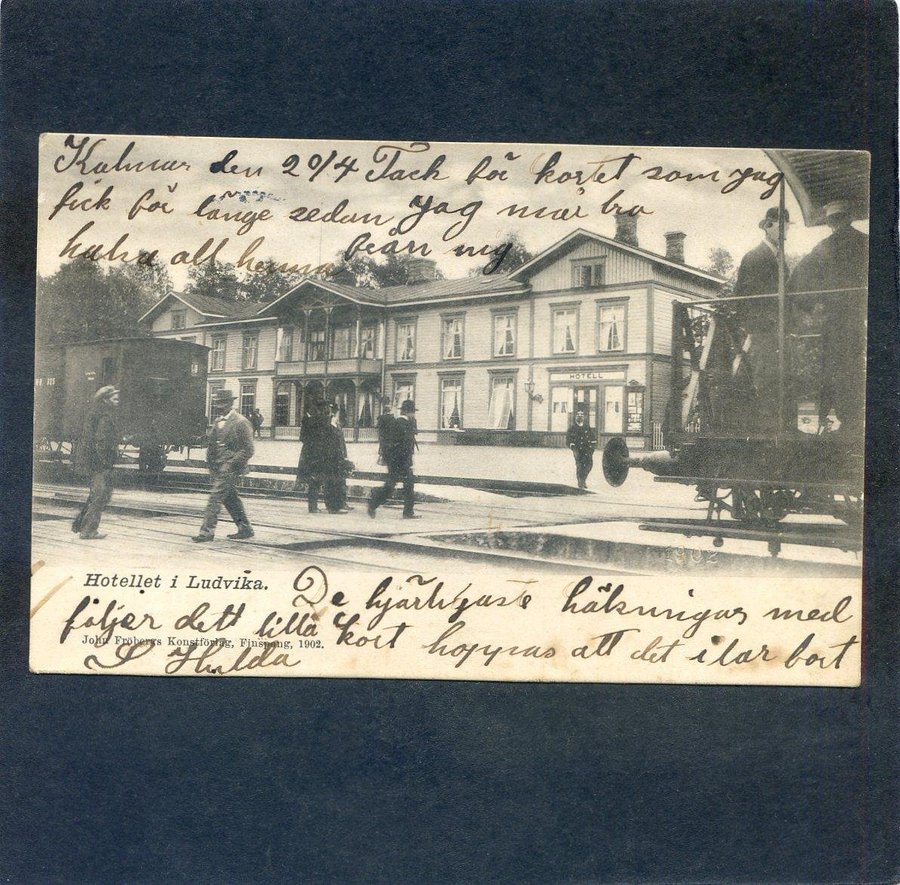 Kalmar den 20/4 Tack för kortet som jag
fick för länge sedan Jag mår bra
hälsa all hemma från mig
HOTELL
Hotellet i Ludvika.
De hjärtligaste hälsningar med
följer dett lilla kort hoppas att det ilar bort
John Fröbergs Konstförlag, Finspong, 1902.
Hulda